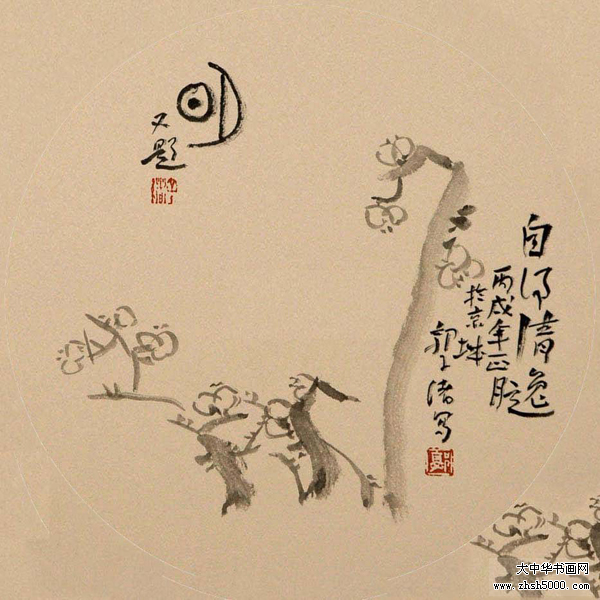 自得清逸
丙戌年正月
於京城
郭子绪写
明
又題
大中华书画网
www.zhsh5000.com